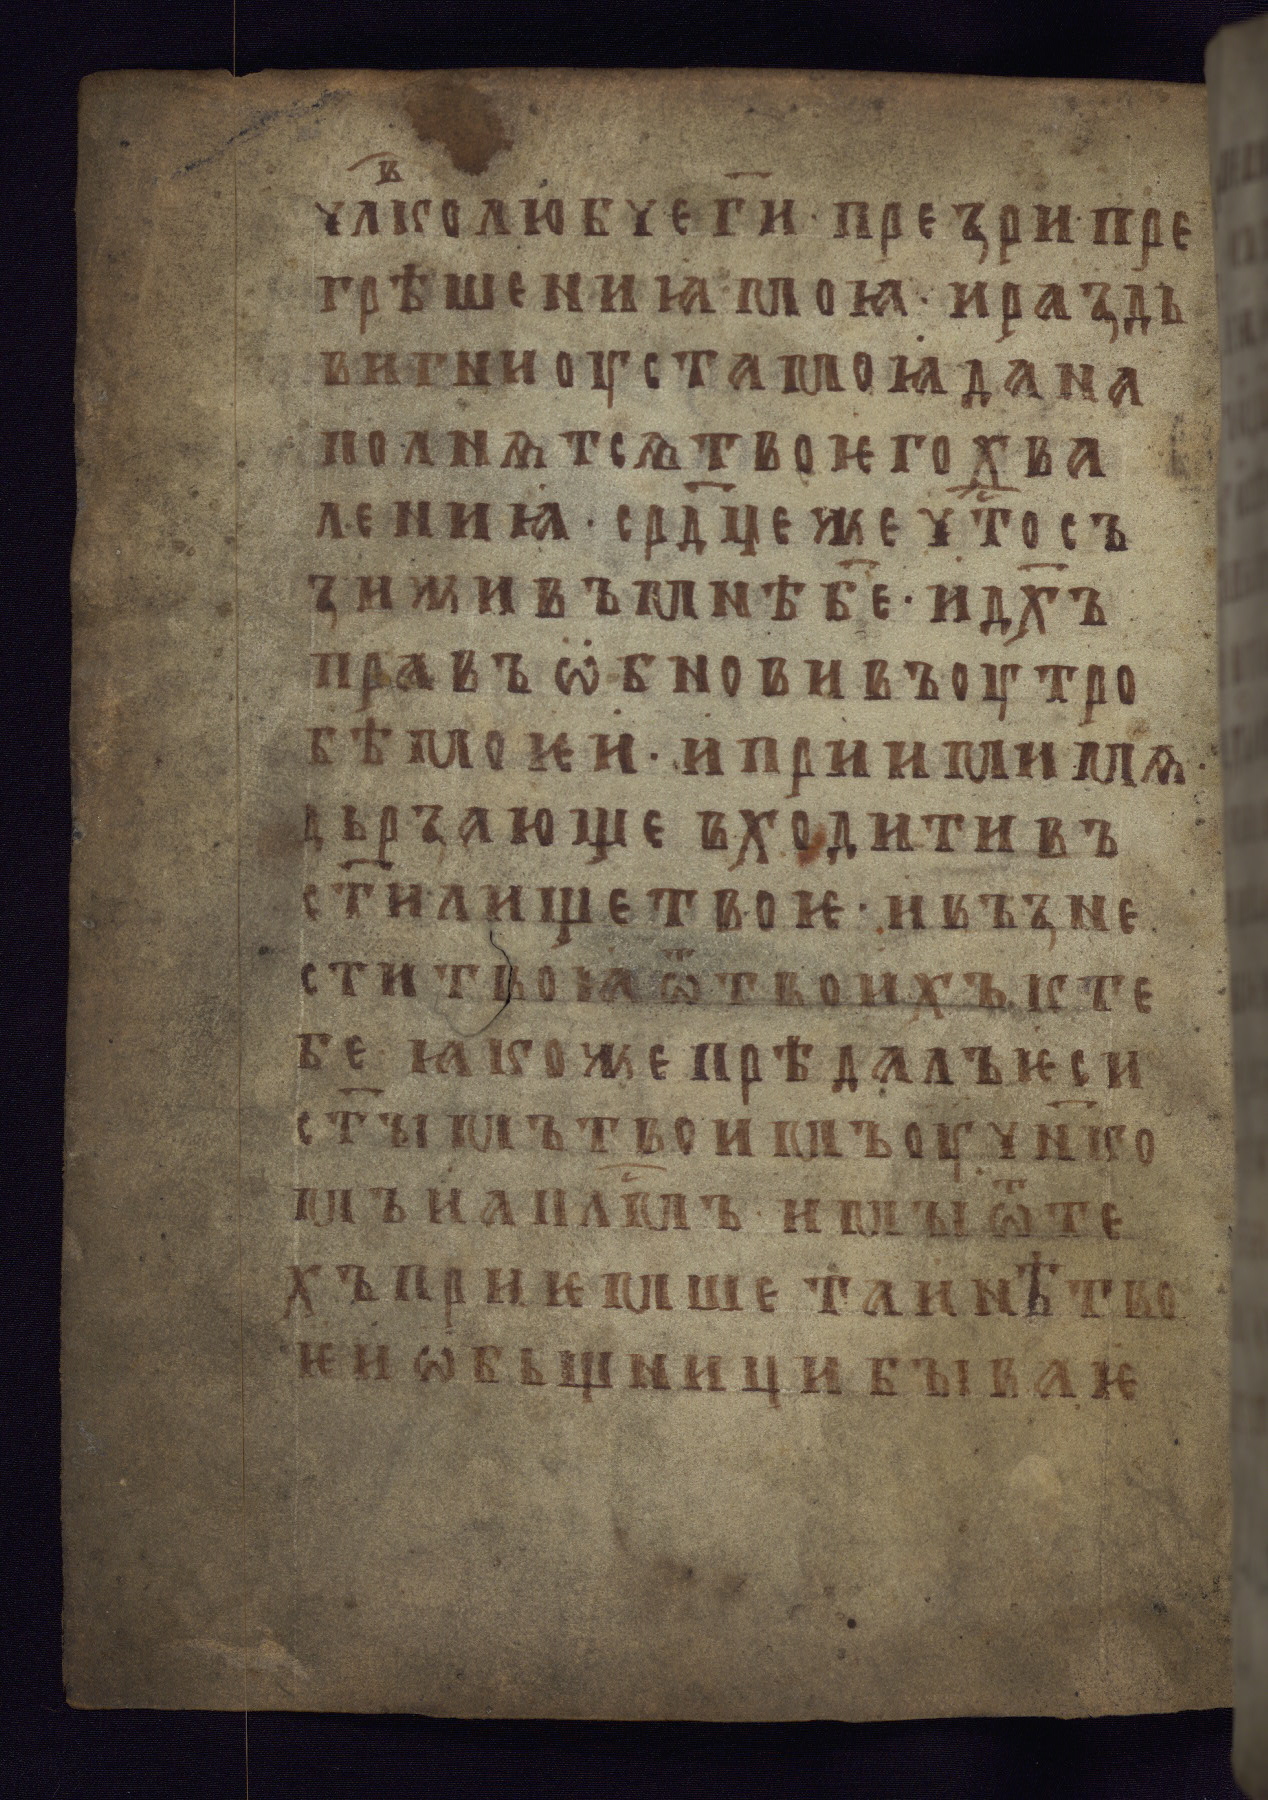 в҃
члколюбче г҃и · презри · пре
грѣшениꙗ моꙗ · и раздь
вигни оуста моꙗ да на
полнѧтсѧ твоѥго хва
лениꙗ · срд҃це же чⷭ҇то съ
зижи въ мнѣ б҃е · и дх҃ъ
правъ ѡ̈бнови въ оутро
бѣ моѥи · и приими мѧ ·
дьрзающе входити въ
ст҃илище твоѥ · и възне
сти твоꙗ ѿ твоихъ к те
бе ꙗкоже прѣдалъ ѥси
ст҃ымъ твоимъ оучн҃ко
мъ и аплⷭ҇мъ · и мы ѿ те
хъ приѥмше таинѣ тво
ѥи ѡбьщници бываѥ